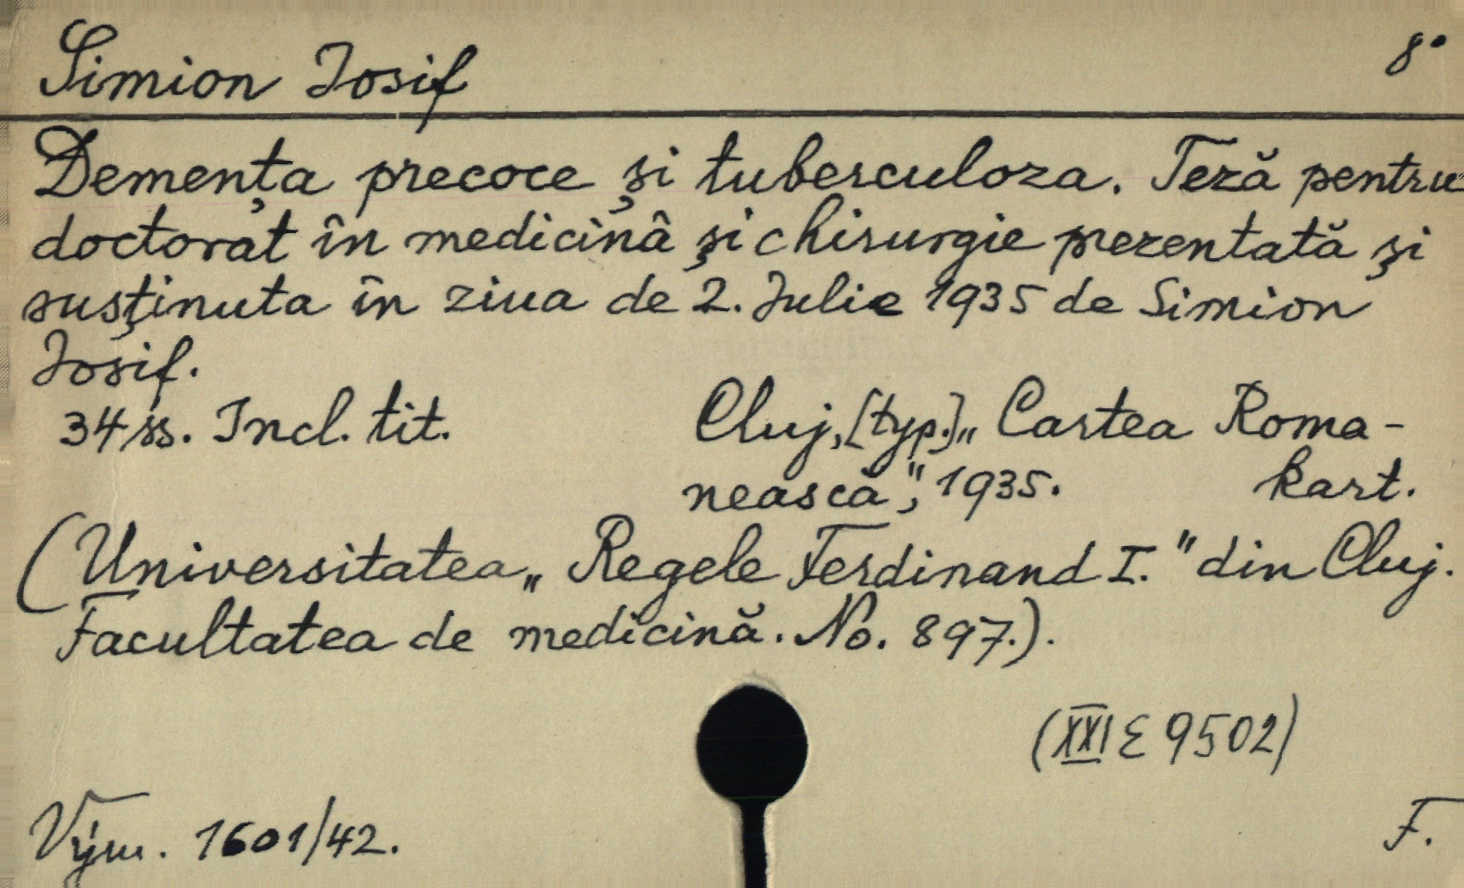 Simion Iosif 8°
Demența precoce și tuberculoza. Teză pentru
doctorat în medicinâ și chirurgie prezentată și
susținuta în ziua de 2. Iulie 1935 de Simion
Iosif.
34 ss. Incl. tit. Cluj, [typ.] „Cartea Roma-
nească", 1935. kart.
(Universitatea „Regele Ferdinand I." din Cluj.
Facultatea de medicină. No. 897.).
(XXI E 9502)
Vým. 1601/42. F.